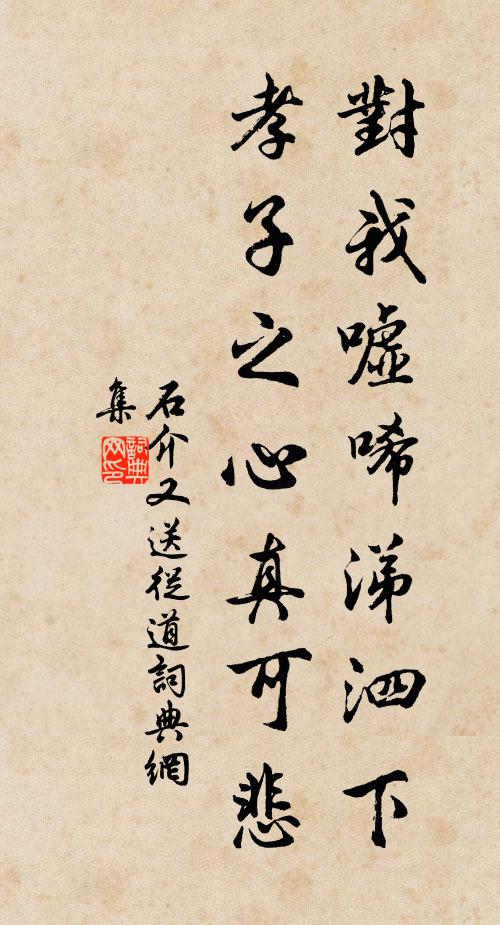 對我嘘唏涕泗下
孝子之心真可悲
石介又送從道詞典網
集
詞典
网印